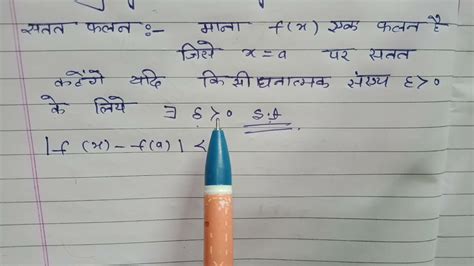 सतत फलन :- माना f(x) एक फलन है
जिसे x=a पर सतत
कहेंगे यदि किसी धनात्मक संख्या ε>0
के लिये ∃ δ>0 s.t
|f(x)-f(a)| <